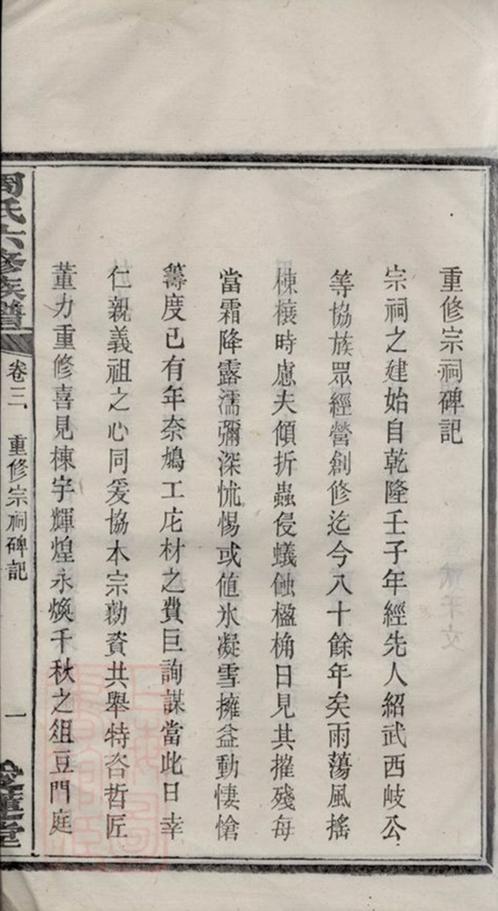 重修宗祠碑記
宗祠之建始自乾隆壬子年經先人紹武西岐公
等協族眾經營創修迄今八十餘年矣雨蕩風搖
棟榱時慮夫傾折蟲侵蟻蝕楹桷日見其摧殘每
當霜降露濡彌深怵惕或値氷凝雪擁益動悽愴
籌度已有年奈鳩工庀材之費巨詢謀當此日幸
仁親義祖之心同爰協本宗勷資共舉特咨哲匠
董力重修喜見棟宇輝煌永煥千秋之俎豆門庭
周氏六修族譜
卷三 重修宗祠碑記
一
堂